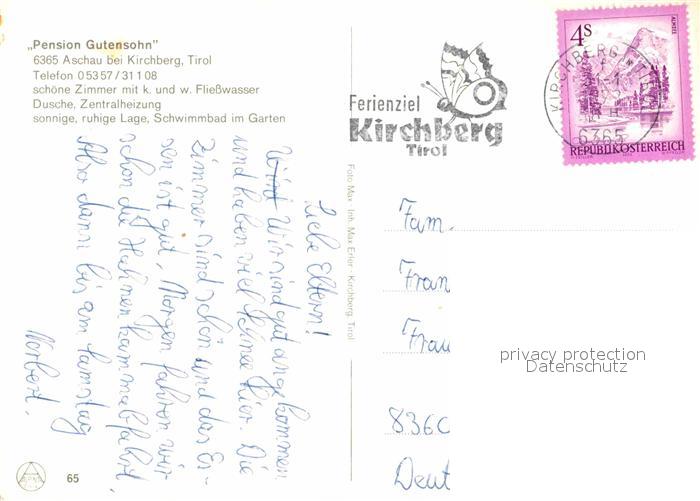 „Pension Gutensohn"
6365 Aschau bei Kirchberg, Tirol
Telefon 05357/31108
schöne Zimmer mit k. und w. Fließwasser
Dusche, Zentralheizung
sonnige, ruhige Lage, Schwimmbad im Garten
Liebe Eltern!
Wir sind gut angekommen
und haben viel hier. Die
Zimmer sind schön und das Es-
sen ist gut, Morgen fahren wir
schon die Hahnenkammabfahrt.
Also dann bis am Samstag
Norbert.
65
Foto Max Inh. Max Erler Kirchberg, Tirol
Ferienziel
Kirchberg
Tirol
4S
ALMSEE
REPUBLIK ÖSTERREICH
KIRCHBERG
6365
Fam.
Fran
Frau
836C
Deut
privacy protection
Datenschutz